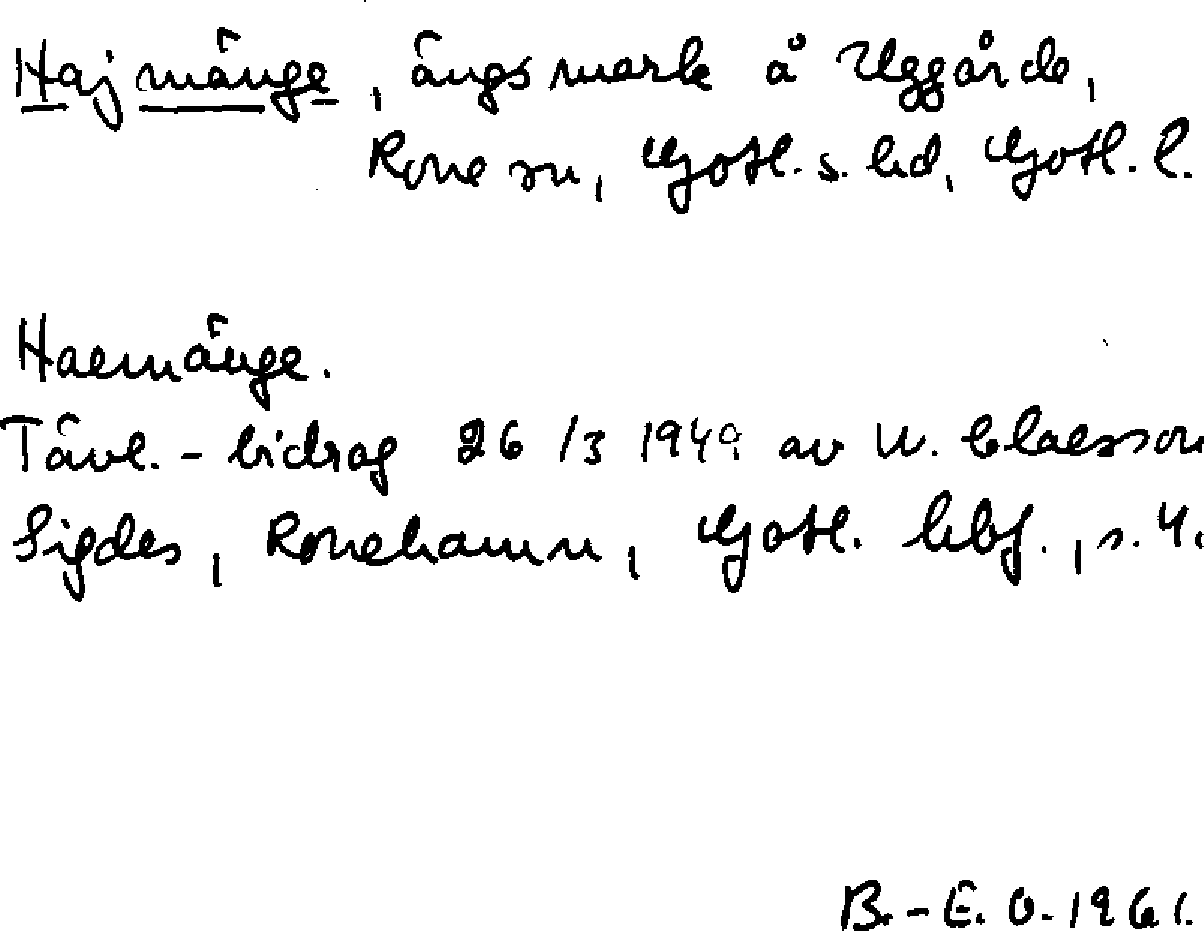 Hajmänge, ängsmark å Uggårde,
Rone sn, Gotl. s. hd, Gotl. l.
Haemänge.
Tävl. - bidrag 26/3 1949 av W. Claesson
Sigdes, Ronehamn, Gotl. hbf., s. 4.
B.-E. O. 1961.